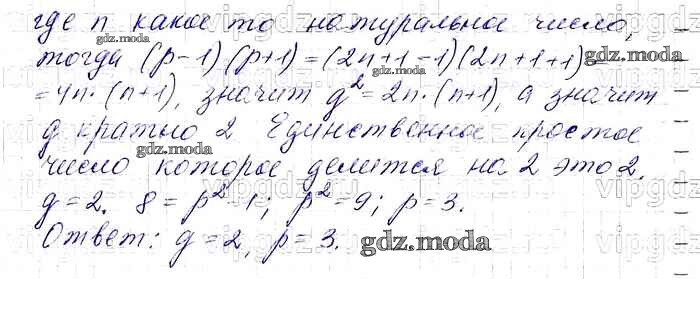 где n какое то натуральное число,
тогда (p-1)(p+1)=(2n+1-1)(2n+1+1)=
=4n·(n+1), значит g²=2n·(n+1), а значит
g кратно 2 Единственное простое
число которое делится на 2 это 2.
g=2. 8=p²-1; p²=9; p=3.
Ответ: g=2, p=3.
gdz.moda